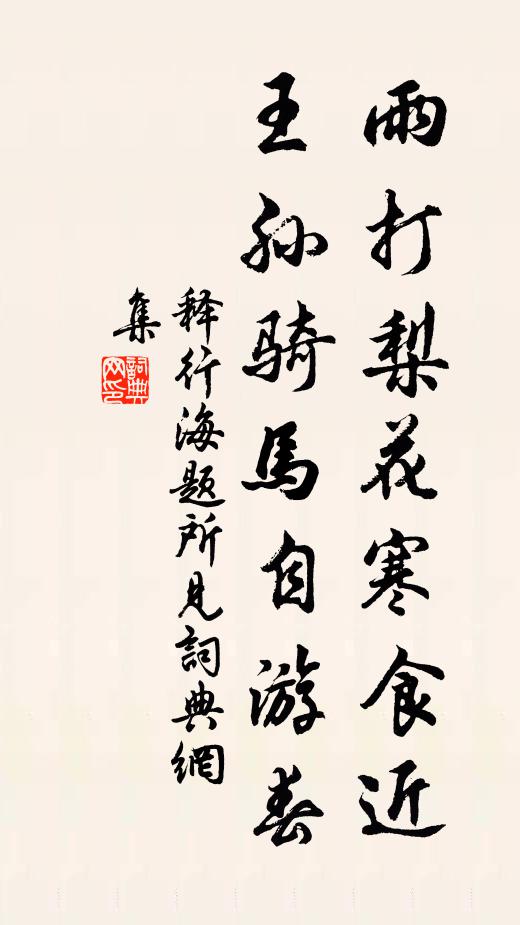 雨打梨花寒食近
王孙骑馬自游春
释行海题所見詞典網
集
詞典網印